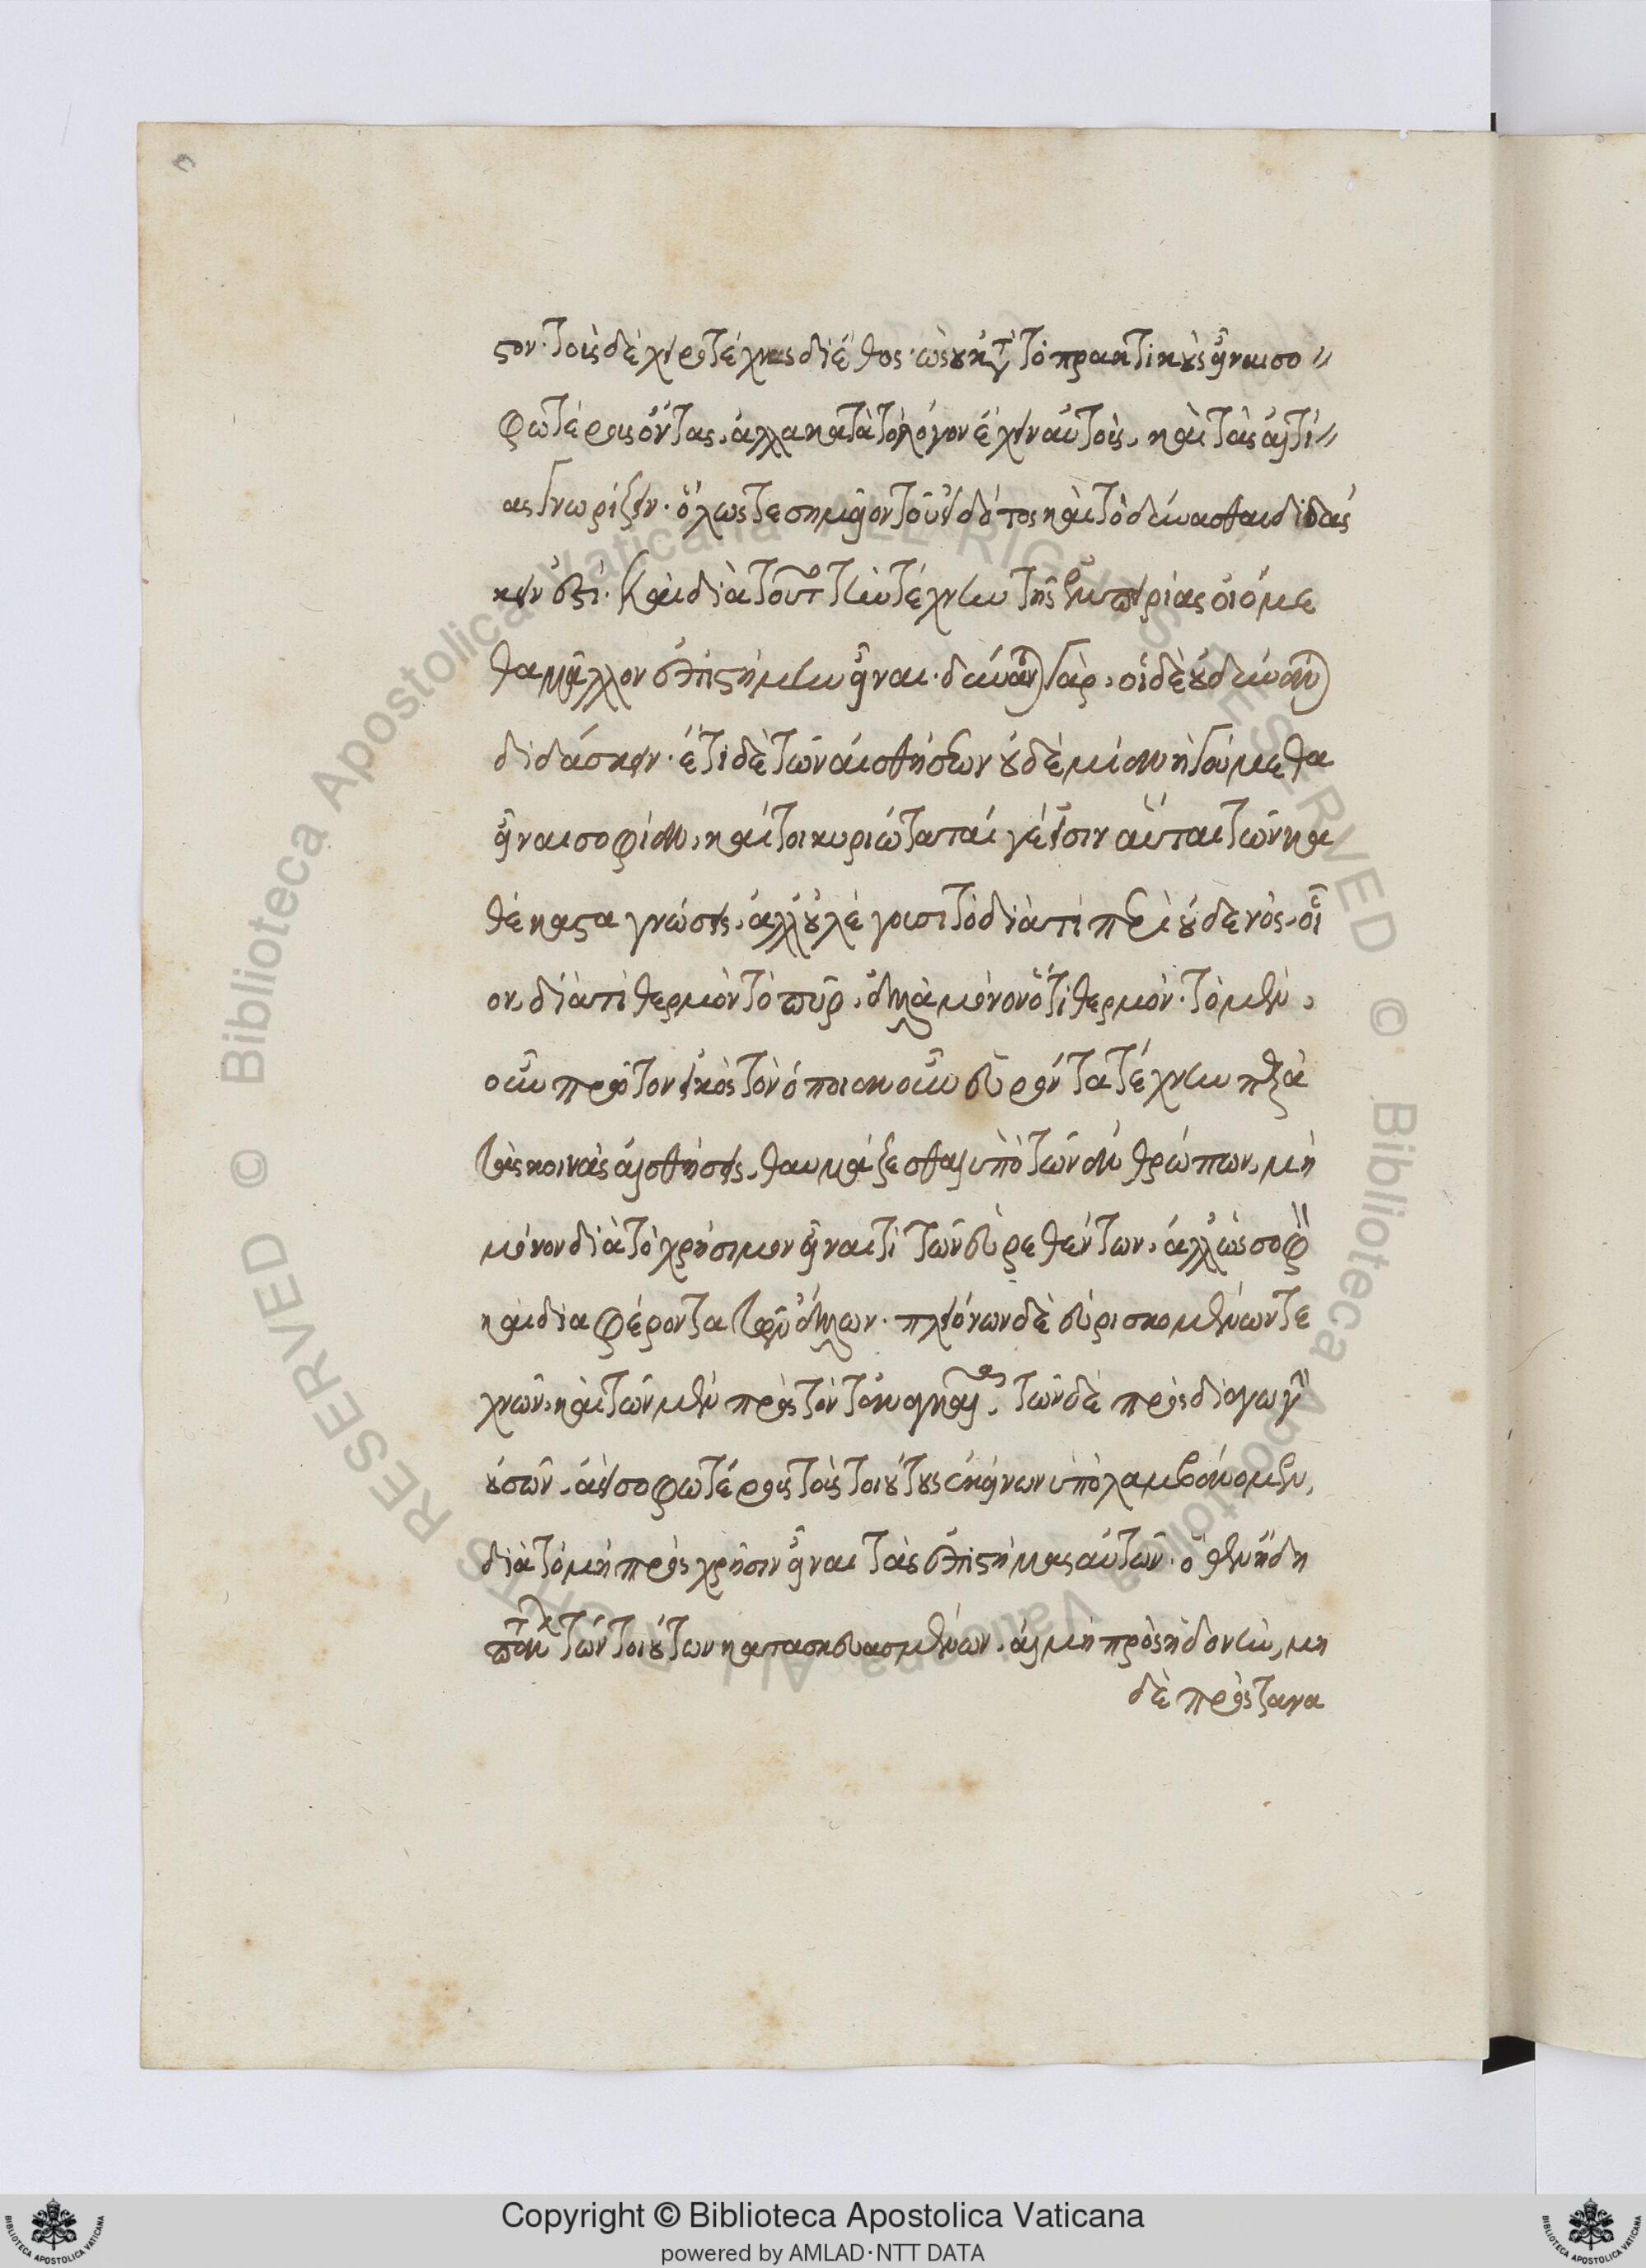 στον· τοὺς δὲ χειροτέχνας δι' ἔθος· ὡς οὐ κατὰ τὸ πρακτικοὺς εἶναι σο
φωτέρους ὄντας, ἀλλὰ κατὰ τὸ λόγον ἔχειν αὐτοὺς, καὶ τὰς αἰτί
ας γνωρίζειν· ὅλως τε σημεῖον τοῦ εἰδότος καὶ τὸ δύνασθαι διδάσ
κειν ἐστί· Καὶ διὰ τοῦτο τὴν τέχνην τῆς ἐμπειρίας οἰόμε
θα μᾶλλον ἐπιστήμην εἶναι· δύνανται γὰρ, οἱ δὲ οὐ δύνανται
διδάσκειν· ἔτι δὲ τῶν αἰσθήσεων οὐδὲ μίαν ἡγούμεθα
εἶναι σοφίαν, καίτοι κυριώταταί γέ εἰσιν αὗται τῶν κα
θέκαστα γνώσεις, ἀλλ' οὐ λέγουσι τὸ διὰ τί περὶ οὐδενός, οἷ
ον, διὰ τί θερμὸν τὸ πῦρ, ἀλλὰ μόνον ὅτι θερμόν· τὸ μὲν,
οὖν πρῶτον εἰκὸς τὸν ὁποιανοῦν εὑρόντα τέχνην παρὰ
τὰς κοινὰς αἰσθήσεις, θαυμάζεσθαι ὑπὸ τῶν ἀνθρώπων, μὴ
μόνον διὰ τὸ χρήσιμον εἶναί τι τῶν εὑρεθέντων, ἀλλ' ὡς σοφὸν
καὶ διαφέροντα τῶν ἄλλων· πλειόνων δὲ εὑρισκομένων τε
χνῶν, καὶ τῶν μὲν πρὸς τὸν τἀναγκαῖα, τῶν δὲ πρὸς διαγωγὴν
οὐσῶν, ἀεὶ σοφωτέρους τοὺς τοιούτους ἐκείνων ὑπολαμβάνομεν,
διὰ τὸ μὴ πρὸς χρῆσιν εἶναι τὰς ἐπιστήμας αὐτῶν· ὅθεν ἤδη
πάντων τῶν τοιούτων κατασκευασμένων, αἱ μὴ πρὸς ἡδονὴν, μη
δὲ πρὸς τἀνα